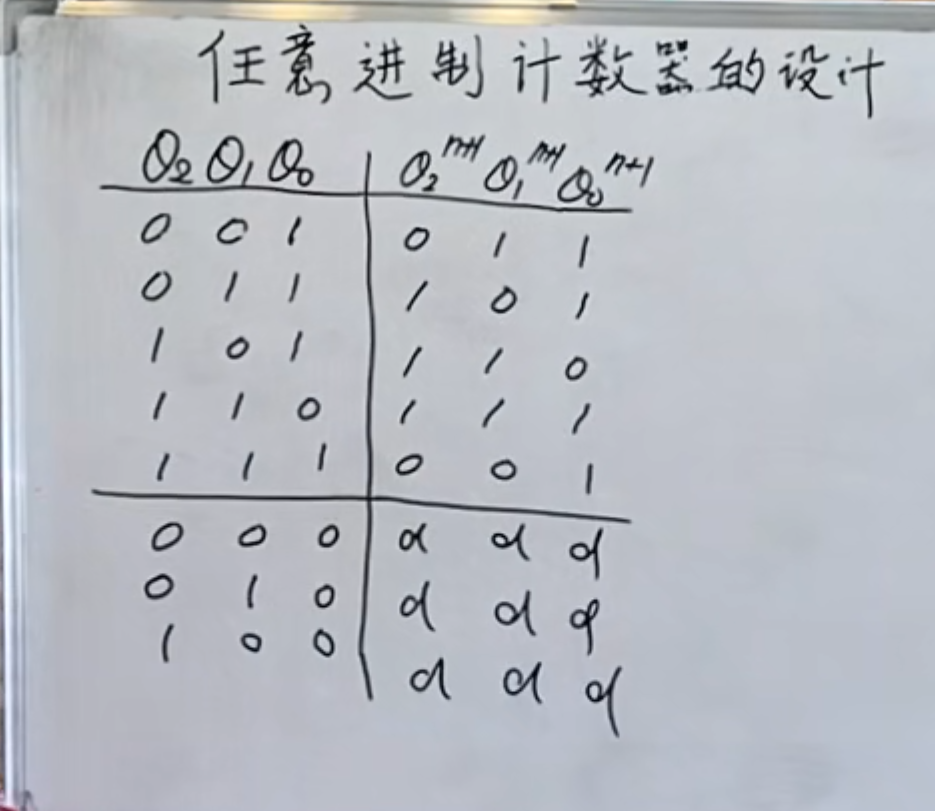 任意进制计数器的设计
Q₂ Q₁ Q₀ Q₂ⁿ⁺¹ Q₁ⁿ⁺¹ Q₀ⁿ⁺¹
0 0 1 0 1 1
0 1 1 1 0 1
1 0 1 1 1 0
1 1 0 1 1 1
1 1 1 0 0 1
0 0 0 d d d
0 1 0 d d d
1 0 0 d d d